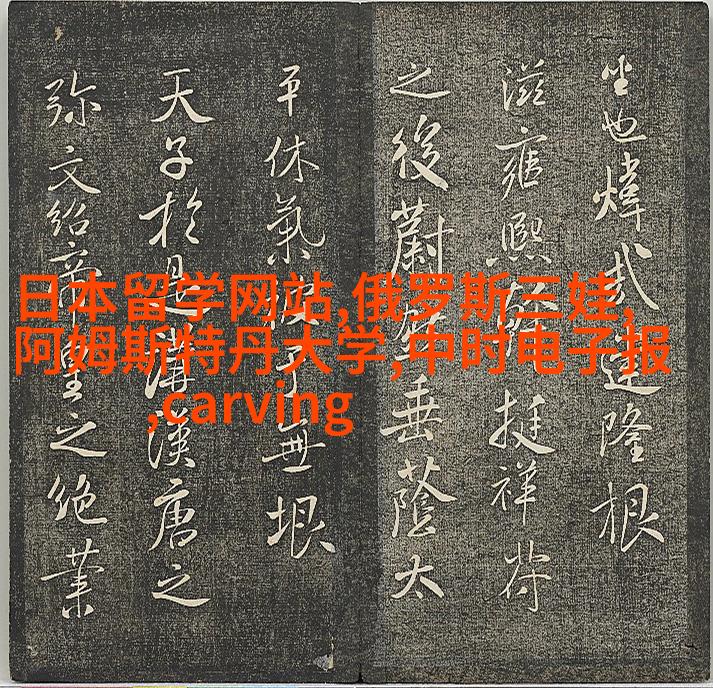 日本留学网站,俄罗斯三娃,
阿姆斯特丹大学,中时电子报
,carving
也煒建隆根
滋雍熙挺祥符
之後蔚垂蔭太
平休氣乎無垠
天子於是講漢唐之
弥文紹帝皇之絶業